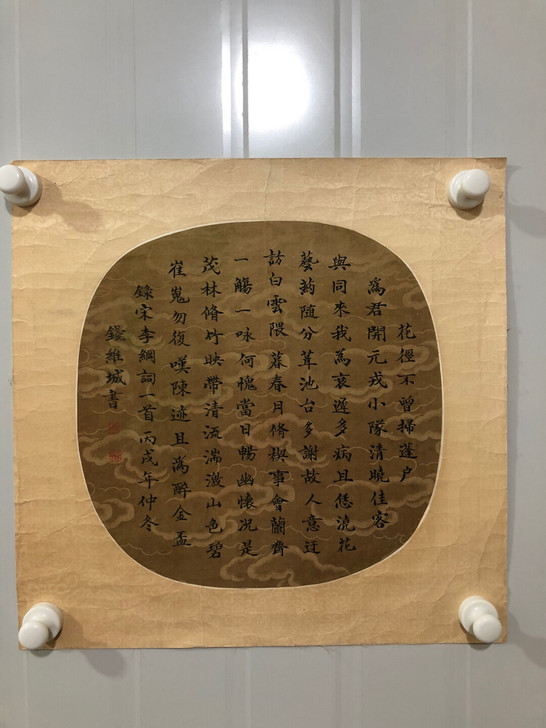 花徑不曾掃蓬户
為君開元戎小隊清曉佳客
與同來我為衰遲多病且恁澆花
藝药随分葺池台多謝故人意迂
訪白雲隈暮春月脩禊事會蘭齊
一觴一咏何愧當日暢幽懷况是
茂林脩竹映帶清流湍激山色碧
崔嵬勿復嘆陳迹且為醉金盃
錄宋李綱詞一首丙戌年仲冬
錢維城書